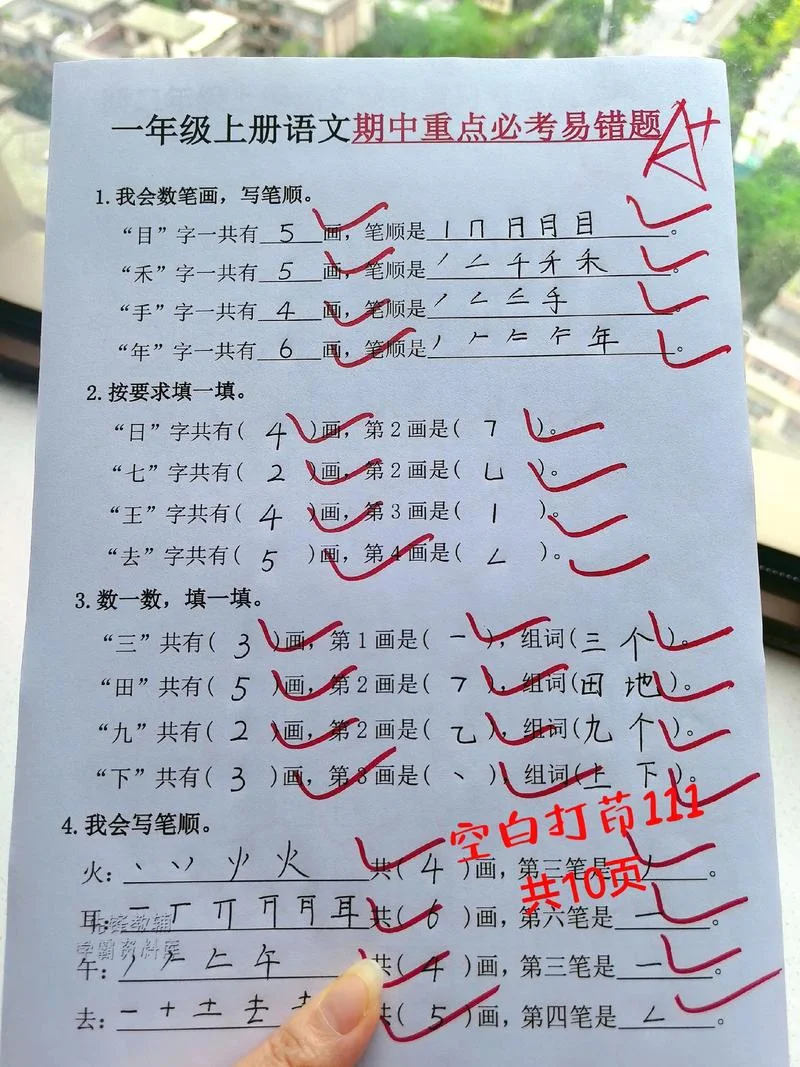 一年级上册语文期中重点必考易错题 A+
1.我会数笔画，写笔顺。
“目”字一共有 5 画，笔顺是 丨 冂 月 月 目 。
“禾”字一共有 5 画，笔顺是 丿 二 千 禾 禾 。
“手”字一共有 4 画，笔顺是 丿 二 三 手 。
“年”字一共有 6 画，笔顺是 丿 𠂉 年 。
2.按要求填一填。
“日”字共有( 4 )画，第2画是( ㇕ )。
“七”字共有( 2 )画，第2画是( 乚 )。
“王”字共有( 4 )画，第3画是( 丨 )。
“去”字共有( 5 )画，第4画是( ㇜ )。
3.数一数，填一填。
“三”共有( 3 )画，第1画是( 一 )，组词(三个)。
“田”共有( 5 )画，第2画是( ㇕ )，组词(田地)。
“九”共有( 2 )画，第2画是( 乙 )，组词(九个)。
“下”共有( 3 )画，第3画是( 丶 )，组词(上下)。
4.我会写笔顺。
空白打印111
火： 丶 丷 火 火 共( 4 )画，第三笔是 丿 。
共10页
耳： 一 丅 丌 耳 共( 6 )画，第六笔是 一 。
学霸资料库
午： 丿 𠂉 午 共( 4 )画，第三笔是 一 。
去： 一 十 土 去 去 共( 5 )画，第四笔是 ㇜ 。